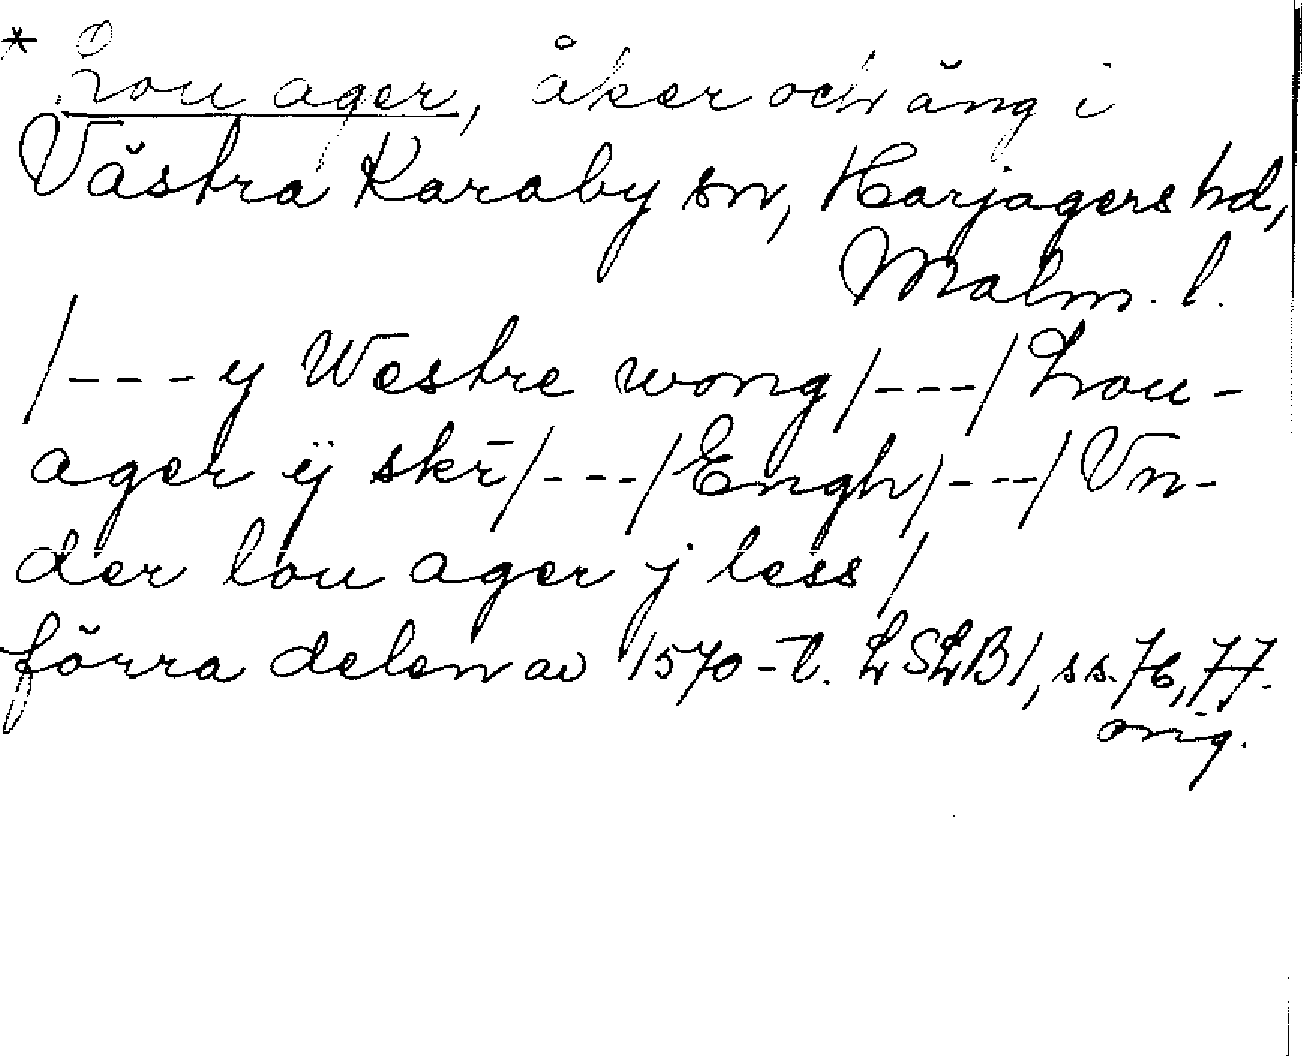 * Lou ager, åker och äng i
Västra Karaby sn, Harjagers hd,
Malm. l.
/---y Westre wong/---/Lou-
ager ÿ skr̄/---/Engh/---/Vn-
der lou ager j less/
förra delen av 1570-t. LSLB1, ss. 76, 77.
orig.